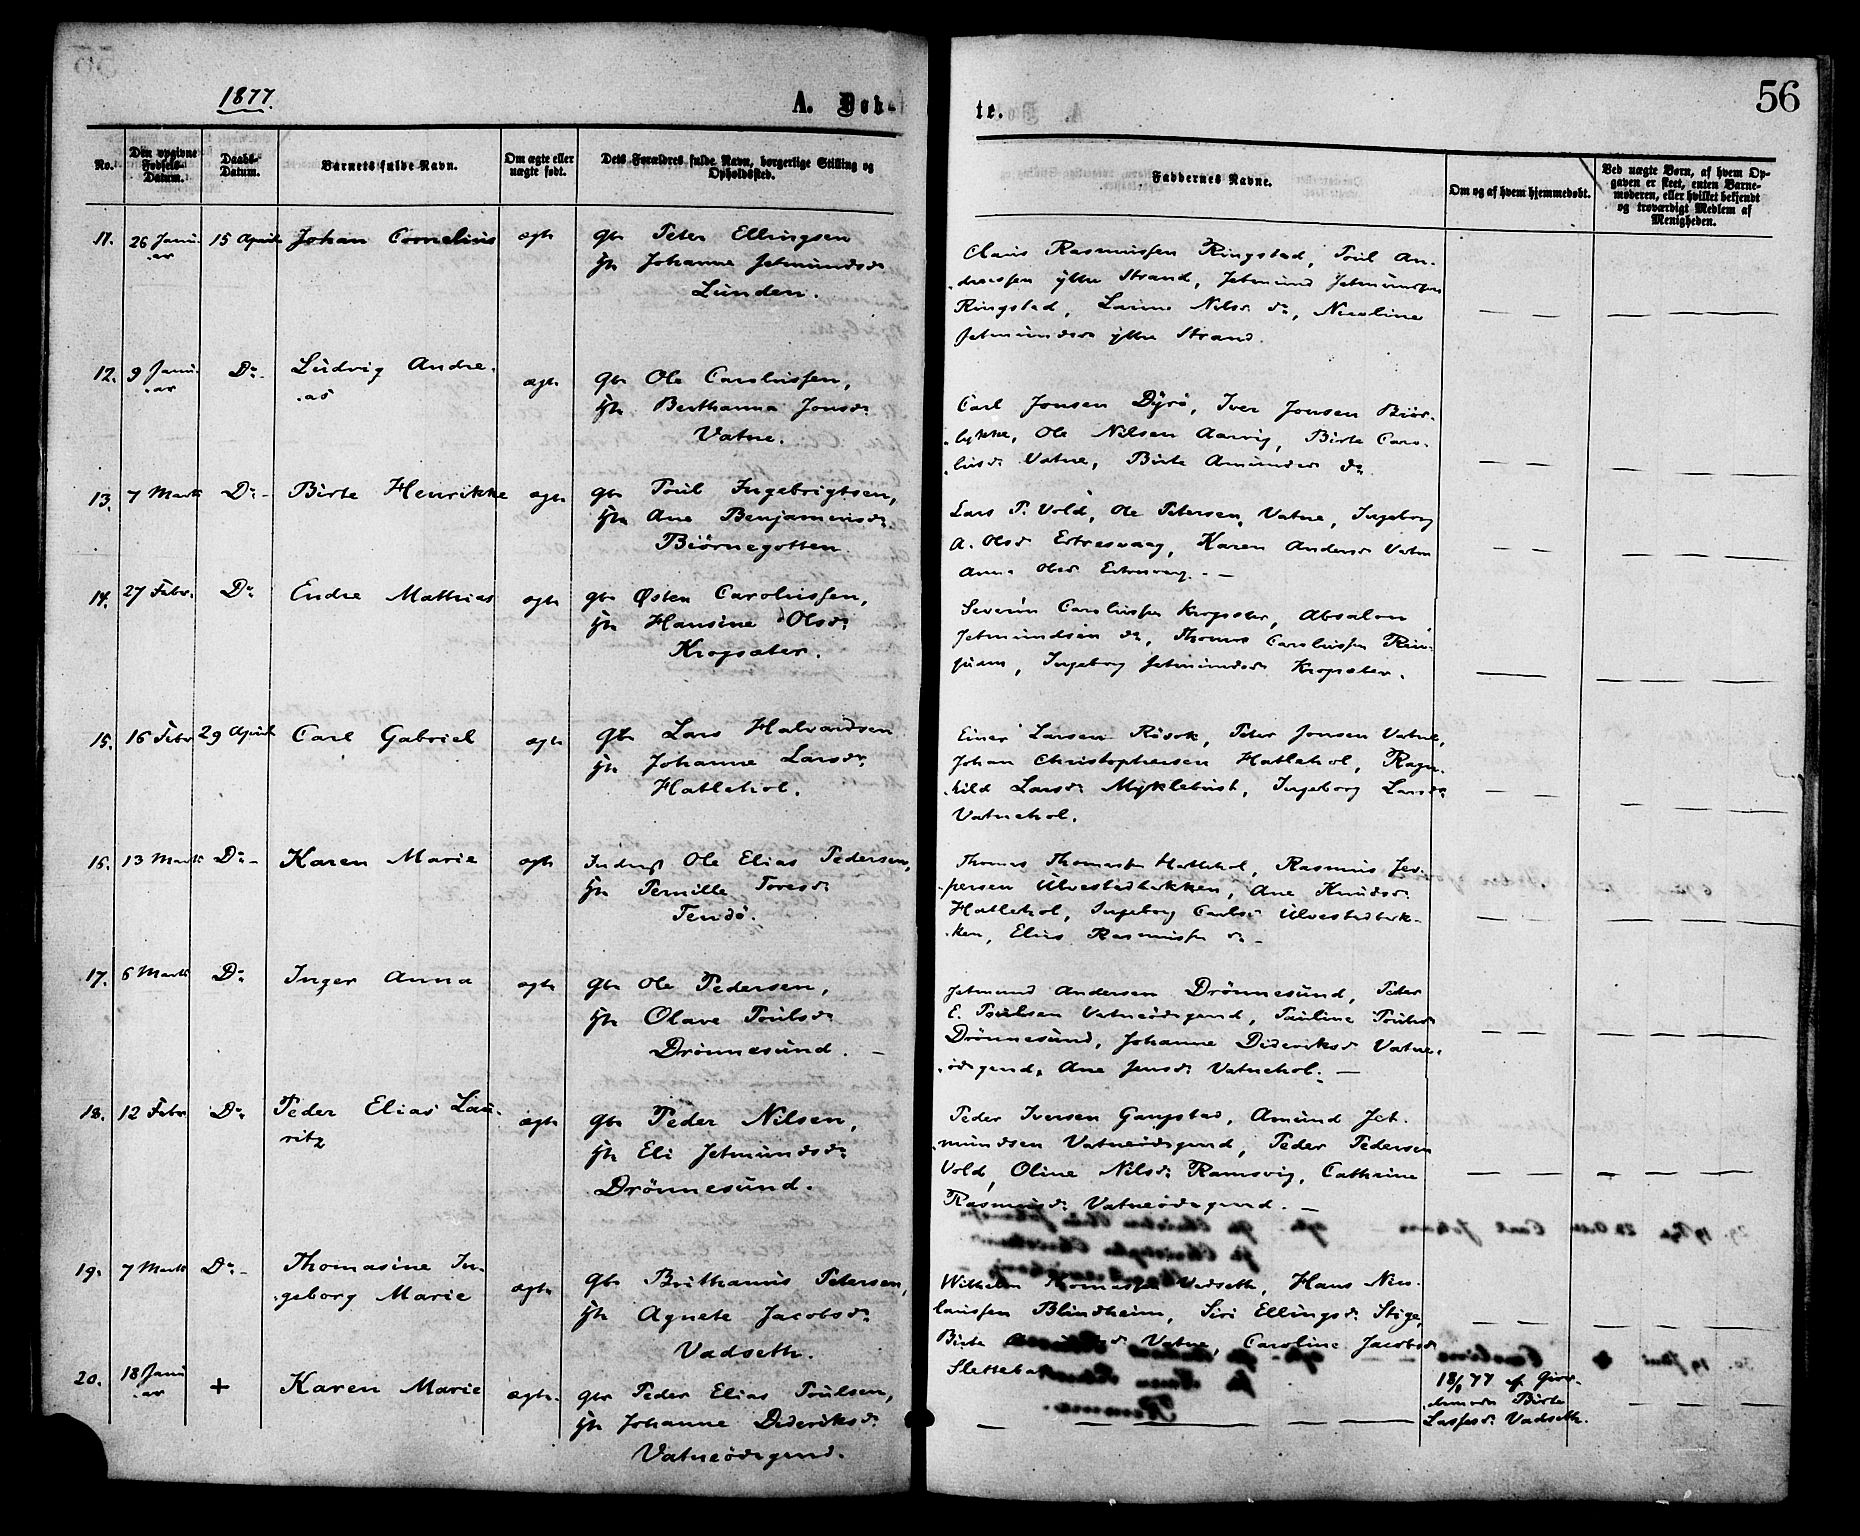 1877.
A. Døbte.
56
No.
Den opgivne Fødsels-Datum.
Daabs-Datum.
Barnets fulde Navn.
Om ægte eller uægte født.
Dets Forældres fulde Navn, borgerlige Stilling og Opholdssted.
Faddernes Navne.
Om og af hvem hjemmedøbt.
Ved uægte Børn, af hvem Opgaven er skeet, enten Barnemoderen, eller hvilket bekjendt og troværdigt Medlem af Menigheden.
11. 26 Janu-ar 15 April Johan Cornelius ægte
Gbr Peter Ellingsen
Hu Johanne Jetmundsdr
Lunden.
Claus Rasmussen Ringstad, Poul An-
dreassen ytre Strand, Jetmund Jetmundsen
Ringstad, Larine Nilsdr do, Nicoline
Jetmundsdr ytre Strand.
12. 9 Janu-ar Do- Ludvig Andre-
as ægte
Gbr Ole Carolussen,
Hu Berthanna Jonsdr
Vatne.
Carl Jonsen Dyrö, Iver Jonsen Biör-
lykke, Ole Nilsen Aarvig, Birte Caro-
lusdr Vatne, Birte Amundsdr do
13. 7 Marts Do- Birte Henrikke ægte
Gbr Poul Ingebrigtsen,
Hu Ane Benjaminsdr
Biörnegotten.
Lars P. Vold, Ole Petersen, Vatne, Ingeborg
A. Olsdr Ertresvaag, Karen Andersdr Vatne
Anne Olsdr Ertresvaag. —
14. 27 Febr. Do Endre Mathias ægte
gbr Østen Carolussen,
Hu Hansine Olsdr
Krogsæter.
Severin Carolussen Krogsæter, Absalon
Jetmundsen do, Thomas Carolussen
Ingeborg Jetmundsdr Krogsæter.
15. 16 Febr 29 April Carl Gabriel ægte
Gbr Lars Halvardsen
Hu Johanne Larsdr
Hatlehol.
Einar Larsen Rösok, Peter Jonsen Vatne,
Johan Christophersen Hatlehol, Ragn-
hild Larsdr Myklebust, Ingeborg Larsdr
Vatnehol.
16. 13 Marts Do- Karen Marie ægte
Inderst Ole Elias Pedersen,
Hu Pernille Toresdr
Tendö.
Thomas Thomassen Hatlehol, Rasmus Jes-
persen Ulvestadbakken, Ane Knudsdr
Hatlehol, Ingeborg Carlsdr Ulvestadbak-
ken, Elias Rasmussen do —
17. 6 Marts Do Inger Anna ægte
Gbr Ole Pedersen,
Hu Olave Poulsdr
Drönnesund. —
Jetmund Andersen Drönnesund, Peder
E. Poulsen Vatneödegaard, Pauline Poulsdr
Drönnesund, Johanne Dideriksdr Vatne-
ödegaard, Ane Jensdr Vatnehol. —
18. 12 Febr Do Peder Elias Lau-
ritz ægte
Gbr Peder Nilsen,
Hu Eli Jetmundsdr
Drönnesund.
Peder Iversen Gangstad, Amund Jet-
mundsen Vatneödegaard, Peder Pedersen
Vold, Oline Nilsdr Ramsvig, Cathrine
Rasmusdr Vatneödegaard. —
19. 7 Marts Do- Thomasine In-
geborg Marie ægte
Gbr Brithanius Petersen,
Hu Agnete Jacobsdr
Vadseth.
Wilhelm Thomassen Vadseth, Hans Nico-
laussen Blindheim, Siri Ellingsdr Stige,
Birte Vatne, Caroline Jacobsdr
Slettebak
20. 18 Janu-ar + Karen Marie ægte
gbr Peder Elias Poulsen,
Hu Johanne Dideriksdr
Vatneödegaard.
18/1 77 af Gjor-
demoder Birte
Lassesdr Vadseth.